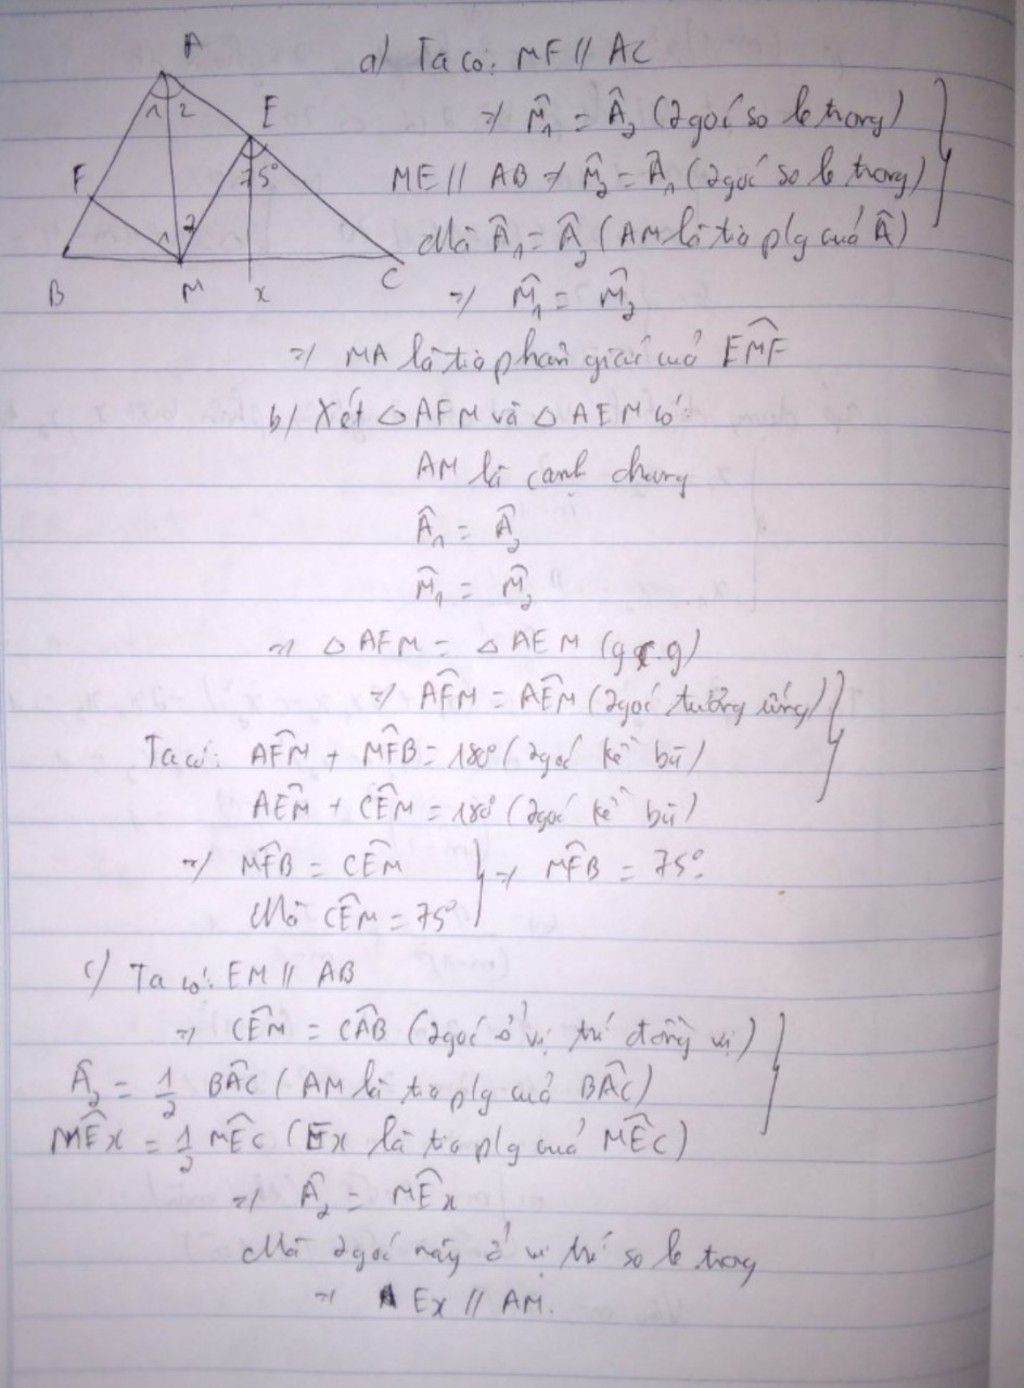 A
1 2
E
75°
F
1 2
B M x C
a) Ta có: MF // AC
=> M̂₁ = Â₂ (2 góc so le trong)
ME // AB => M̂₂ = Â₁ (2 góc so le trong)
Mà Â₁ = Â₂ (AM là tia p/g của Â)
=> M̂₁ = M̂₂
=> MA là tia phân giác của EM̂F
b) Xét △ AFM và △ AEM có:
AM là cạnh chung
Â₁ = Â₂
M̂₁ = M̂₂
=> △ AFM = △ AEM (g.c.g)
=> AF̂M = AÊM (2 góc tương ứng)
Ta có: AF̂M + MF̂B = 180° (2 góc kề bù)
AÊM + CÊM = 180° (2 góc kề bù)
=> MF̂B = CÊM => MF̂B = 75°.
Mà CÊM = 75°
c) Ta có: EM // AB
=> CÊM = CÂB (2 góc ở vị trí đồng vị)
Â₂ = 1/2 BÂC (AM là tia p/g của BÂC)
MÊx = 1/2 MÊC (Ex là tia p/g của MÊC)
=> Â₂ = MÊx
Mà 2 góc này ở vị trí so le trong
=> Ex // AM.